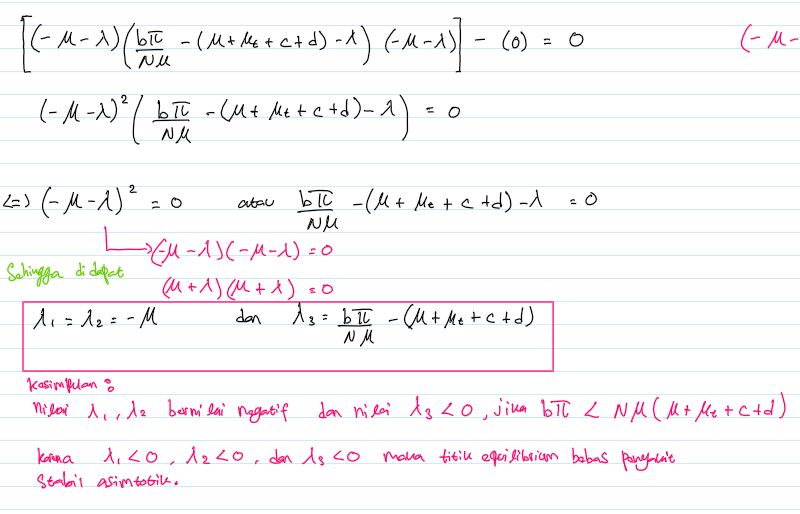 [(-μ-λ)(bπ/Nμ - (μ+μₜ+c+d) - λ) (-μ-λ)] - (0) = 0
(-μ-
(-μ-λ)² (bπ/Nμ - (μ+μₜ+c+d) - λ) = 0
<=> (-μ-λ)² = 0 atau bπ/Nμ - (μ+μₜ+c+d) - λ = 0
(-μ-λ)(-μ-λ) = 0
Sehingga didapat
(μ+λ)(μ+λ) = 0
λ₁ = λ₂ = -μ dan λ₃ = bπ/Nμ - (μ+μₜ+c+d)
Kesimpulan :
Nilai λ₁, λ₂ bernilai negatif dan nilai λ₃ < 0, jika bπ < Nμ(μ+μₜ+c+d)
karena λ₁ < 0, λ₂ < 0, dan λ₃ < 0 maka titik equilibrium bebas penyakit
Stabil asimtotik.